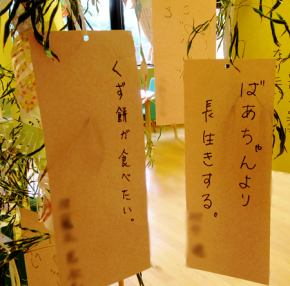 ばあちゃんより
長生きする。
くず餅が食べたい。